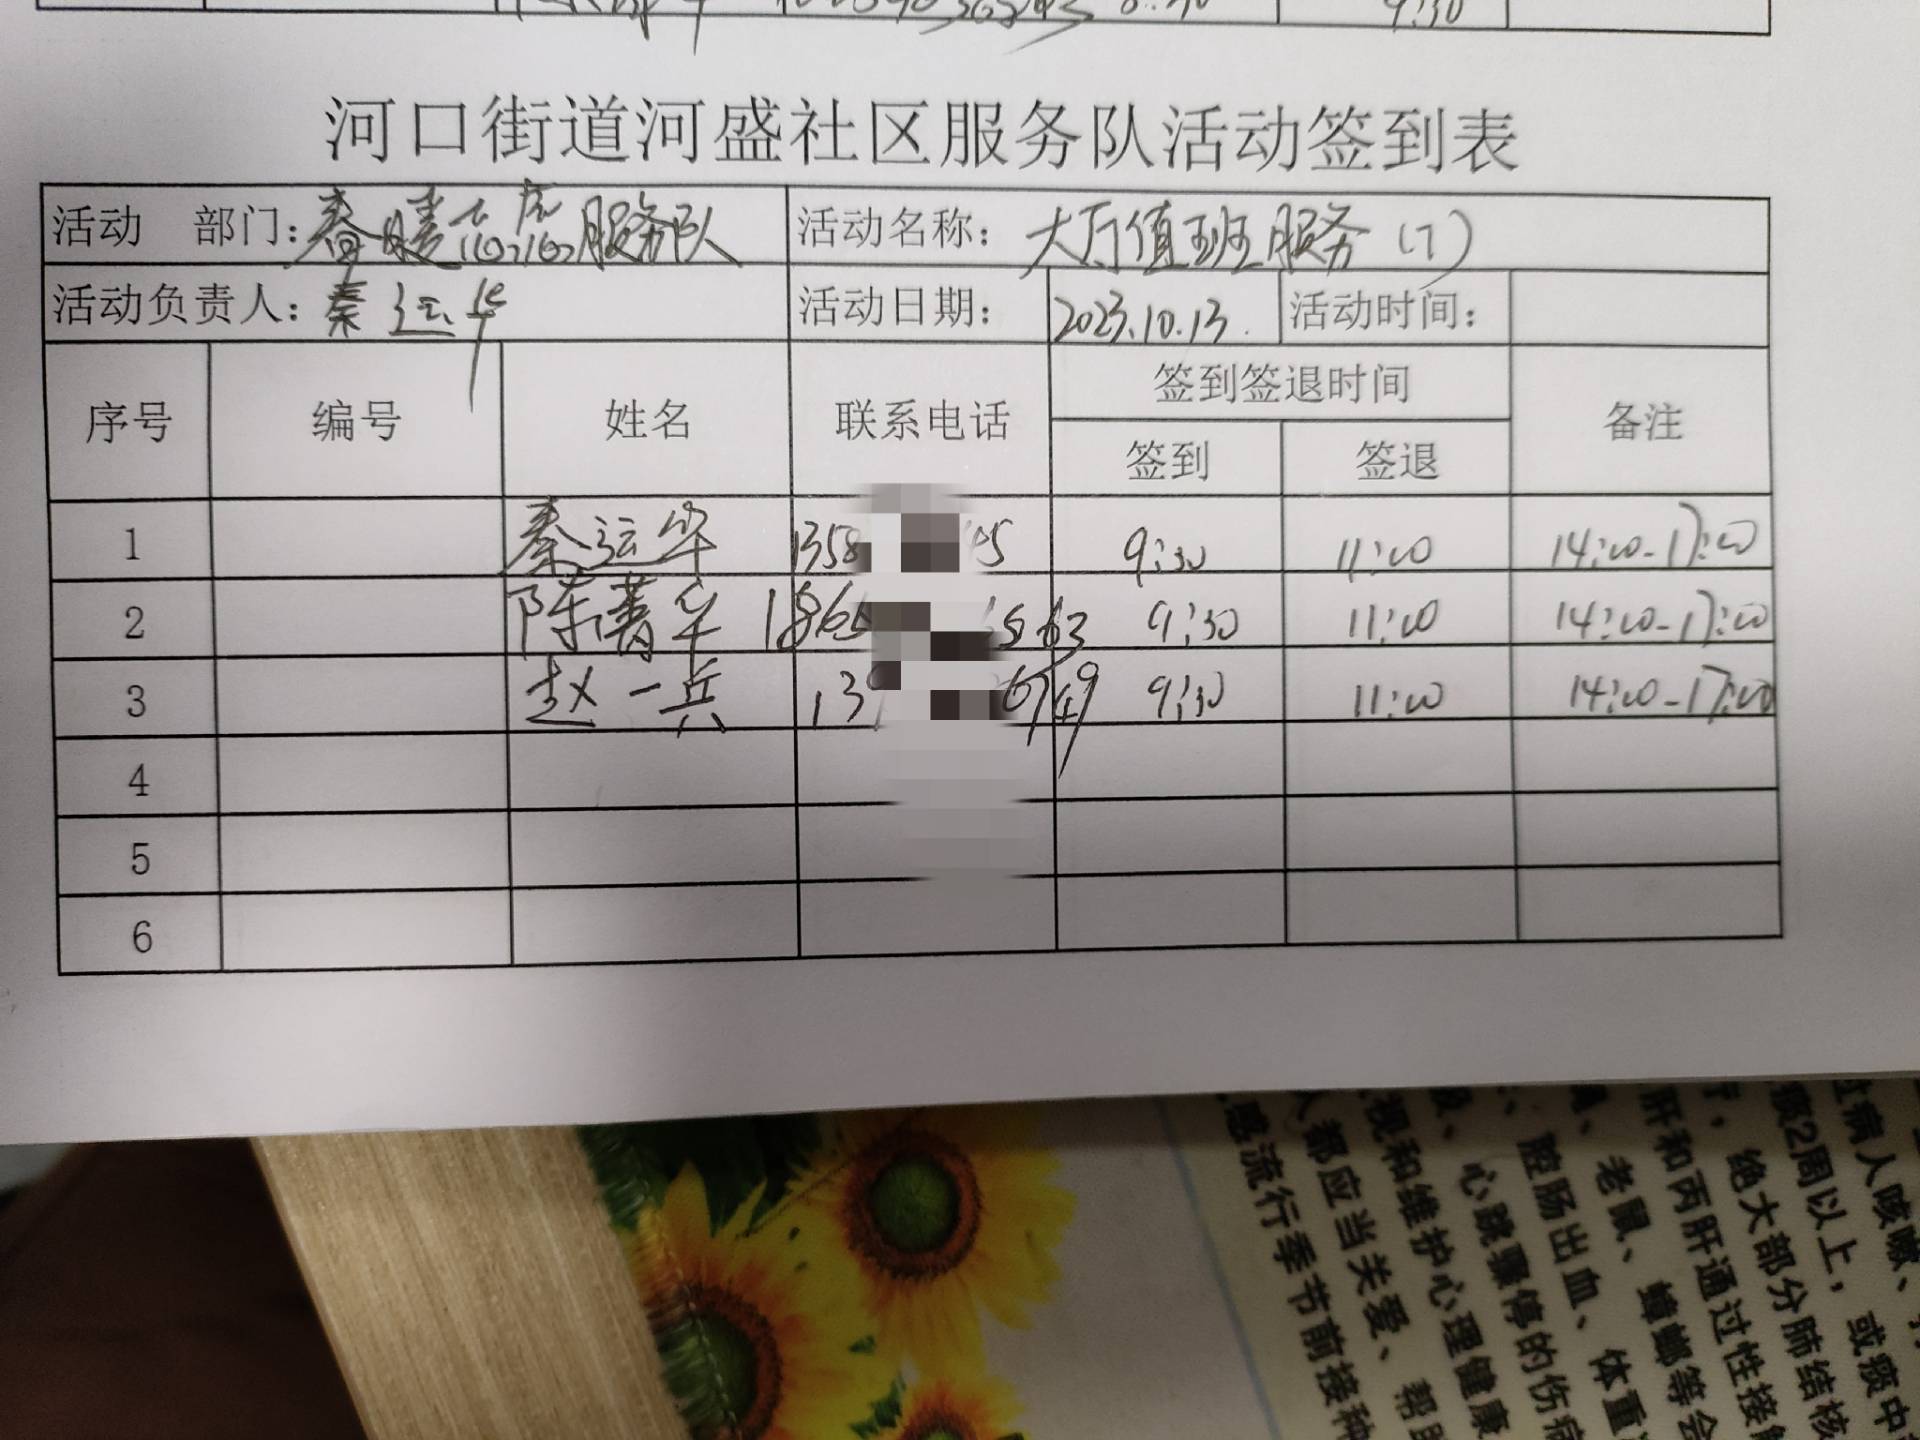 9:30
河口街道河盛社区服务队活动签到表
活动 部门：春暖志愿服务队 活动名称：大厅值班服务（7）
活动负责人：秦运华 活动日期：2023.10.13. 活动时间：
序号 编号 姓名 联系电话 签到签退时间 备注
签到 签退
1 秦运华 1358 9:30 11:00 14:00-17:00
2 陈菁华 1865 563 9:30 11:00 14:00-17:00
3 赵一兵 13 6749 9:30 11:00 14:00-17:00
4
5
6
过病人咳嗽、
痰2周以上，或痰中
，绝大部分肺结核
肝和丙肝通过性接触
、老鼠、蟑螂等会
、腔肠出血、体重
、心跳骤停的伤病
视和维护心理健康
人都应当关爱、帮助
感流行季节前接种